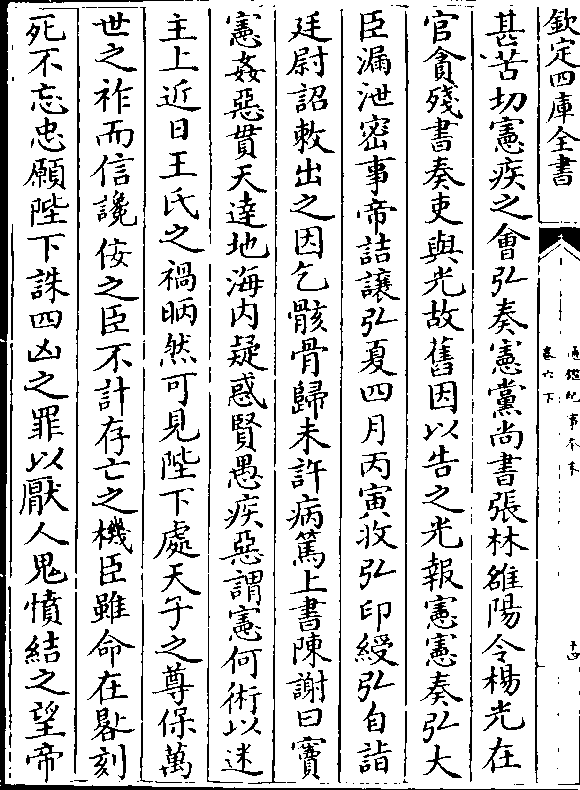 欽定四庫全書
通鑑紀事本末
卷六下
十四
甚苦切憲疾之會弘奏憲黨尚書張林雒陽令楊光在
官貪殘書奏吏與光故舊因以告之光報憲憲奏弘大
臣漏泄密事帝詰讓弘夏四月丙寅收弘印綬弘自詣
廷尉詔敕出之因乞骸骨歸未許病篤上書陳謝曰竇
憲姦惡貫天達地海內疑惑賢愚疾惡謂憲何術以迷
主上近日王氏之禍昞然可見陛下處天子之尊保萬
世之祚而信讒佞之臣不計存亡之機臣雖命在晷刻
死不忘忠願陛下誅四凶之罪以厭人鬼憤結之望帝